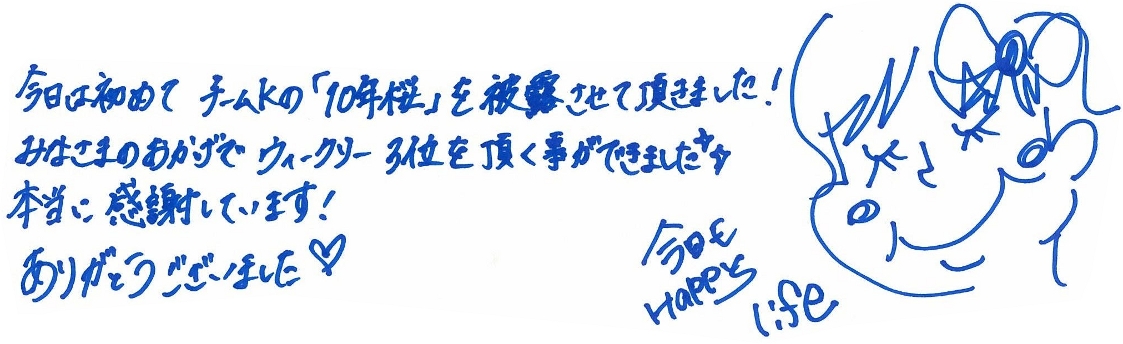 今日は初めて チームKの「10年桜」を被露させて頂きました!
みなさまのおかげで ウィークリー 3位を頂く事ができました☆☆
本当に感謝しています!
ありがとうございました♡
今日も
Happy
life